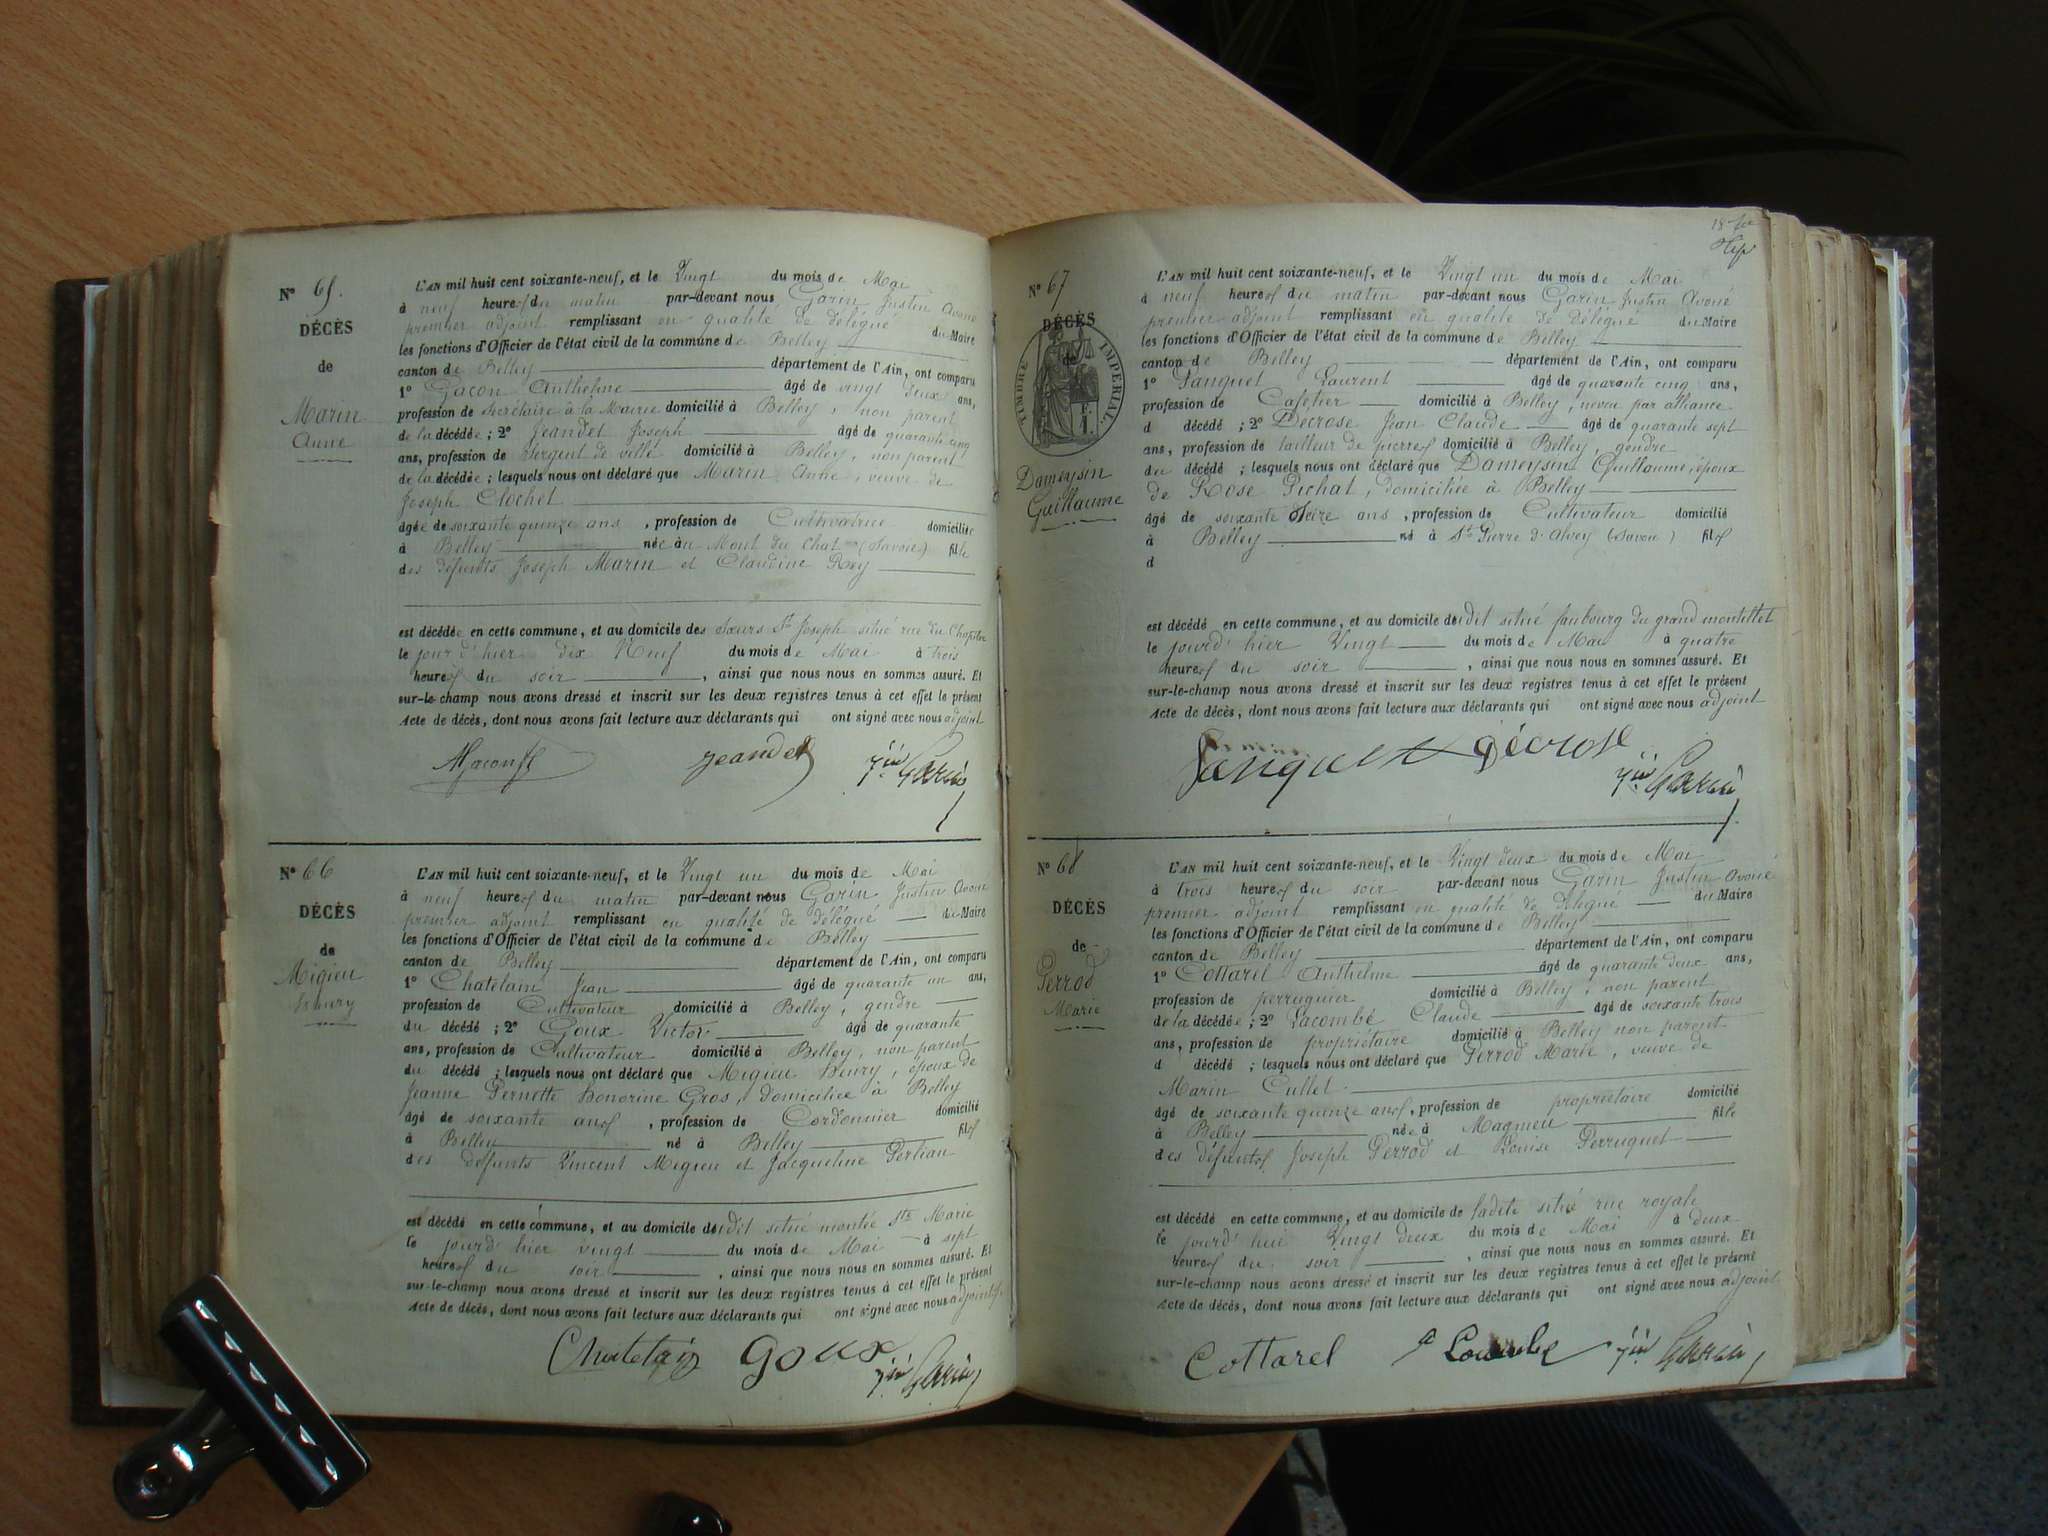 Nº 65.
DÉCÈS
de
Marin
Anne
L'AN mil huit cent soixante-neuf, et le Vingt du mois de Mai
à neuf heures du matin par-devant nous Garin Justin Avoué
premier adjoint remplissant en qualité de délégué du Maire
les fonctions d'Officier de l'état civil de la commune de Belley
canton de Belley département de l'Ain, ont comparu
1º Gacon Anthelme âgé de vingt deux ans,
profession de Secrétaire à la Mairie domicilié à Belley, non parent
de la décédée; 2º Jeandet Joseph âgé de quarante cinq
ans, profession de Sergent de ville domicilié à Belley, non parent
de la décédée; lesquels nous ont déclaré que Marin Anne, veuve de
Joseph Clochet
âgée de soixante quinze ans, profession de Cultivatrice domiciliée
à Belley née au Mont du Chat (Savoie) fille
des défunts Joseph Marin et Claudine Rey
est décédée en cette commune, et au domicile des Sœurs St Joseph situé rue du Chapitre
le jour d'hier dix Neuf du mois de Mai à trois
heures du soir, ainsi que nous nous en sommes assuré. Et
sur-le-champ nous avons dressé et inscrit sur les deux registres tenus à cet effet le présent
Acte de décès, dont nous avons fait lecture aux déclarants qui ont signé avec nous adjoint
Jeandet Garin
Nº 66
DÉCÈS
de
Migieu
henry
L'AN mil huit cent soixante-neuf, et le Vingt un du mois de Mai
à neuf heures du matin par-devant nous Garin Justin Avoué
premier adjoint remplissant en qualité de délégué du Maire
les fonctions d'Officier de l'état civil de la commune de Belley
canton de Belley département de l'Ain, ont comparu
1º Chatelain Jean âgé de quarante un ans,
profession de Cultivateur domicilié à Belley, gendre
du décédé; 2º Goux Victor âgé de quarante
ans, profession de Cultivateur domicilié à Belley, non parent
du décédé; lesquels nous ont déclaré que Migieu henry, époux de
Jeanne Pernette honorine Gros, domiciliée à Belley
âgé de soixante ans, profession de Cordonnier domicilié
à Belley né à Belley fils
des défunts Vincent Migieu et Jacqueline Pertian
est décédé en cette commune, et au domicile dudit situé montée Ste Marie
le jourd'hier vingt du mois de Mai à sept
heures du soir, ainsi que nous nous en sommes assuré. Et
sur-le-champ nous avons dressé et inscrit sur les deux registres tenus à cet effet le présent
Acte de décès, dont nous avons fait lecture aux déclarants qui ont signé avec nous adjoint
Chatelain Goux Garin
Nº 67
DÉCÈS
de
TIMBRE IMPÉRIAL.
Dameysin
Guillaume
L'AN mil huit cent soixante-neuf, et le Vingt un du mois de Mai
à neuf heures du matin par-devant nous Garin Justin Avoué
premier adjoint remplissant en qualité de délégué du Maire
les fonctions d'Officier de l'état civil de la commune de Belley
canton de Belley département de l'Ain, ont comparu
1º Janquet Laurent âgé de quarante cinq ans,
profession de Cafetier domicilié à Belley, neveu par alliance
d décédé; 2º Décrose Jean Claude âgé de quarante sept
ans, profession de tailleur de pierres domicilié à Belley, gendre
du décédé; lesquels nous ont déclaré que Dameysin Guillaume, époux
de Rose Pichat, domiciliée à Belley
âgé de soixante seize ans, profession de Cultivateur domicilié
à Belley né à St Pierre d'Alvey (Savoie) fils
d
est décédé en cette commune, et au domicile dudit situé faubourg du grand montillet
le jourd'hier Vingt du mois de Mai à quatre
heures du soir, ainsi que nous nous en sommes assuré. Et
sur-le-champ nous avons dressé et inscrit sur les deux registres tenus à cet effet le présent
Acte de décès, dont nous avons fait lecture aux déclarants qui ont signé avec nous adjoint
Janquet Décrose Garin
Nº 68
DÉCÈS
de
Perrod
Marie
L'AN mil huit cent soixante-neuf, et le Vingt deux du mois de Mai
à trois heures du soir par-devant nous Garin Justin Avoué
premier adjoint remplissant en qualité de délégué du Maire
les fonctions d'Officier de l'état civil de la commune de Belley
canton de Belley département de l'Ain, ont comparu
1º Cottarel Anthelme âgé de quarante deux ans,
profession de perruquier domicilié à Belley, non parent
de la décédée; 2º Lacombe Claude âgé de soixante trois
ans, profession de propriétaire domicilié à Belley non parent
d décédé; lesquels nous ont déclaré que Perrod Marie, veuve de
Marin Cullet
âgé de soixante quinze ans, profession de propriétaire domicilié
à Belley née à Magnieu fille
des défunts Joseph Perrod et Louise Perruquet
est décédé en cette commune, et au domicile de ladite situé rue royale
le jourd'hui Vingt deux du mois de Mai à deux
heures du soir, ainsi que nous nous en sommes assuré. Et
sur-le-champ nous avons dressé et inscrit sur les deux registres tenus à cet effet le présent
Acte de décès, dont nous avons fait lecture aux déclarants qui ont signé avec nous adjoint
Cottarel Garin